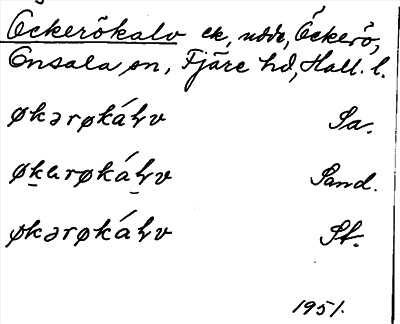 Öckerökalv ek, udde, Öckerö,
Onsala sn, Fjäre hd, Hall. l.
økərøkálv Sa.
økərøkálv Sand.
økərøkálv St.
1951.